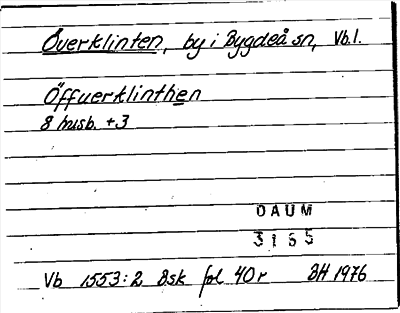 Överklinten, by i Bygdeå sn, Vb.l.
Öffuerklinthen
8 husb. +3
DAUM
3165
Vb 1553:2 8sk fol 40r BH 1976